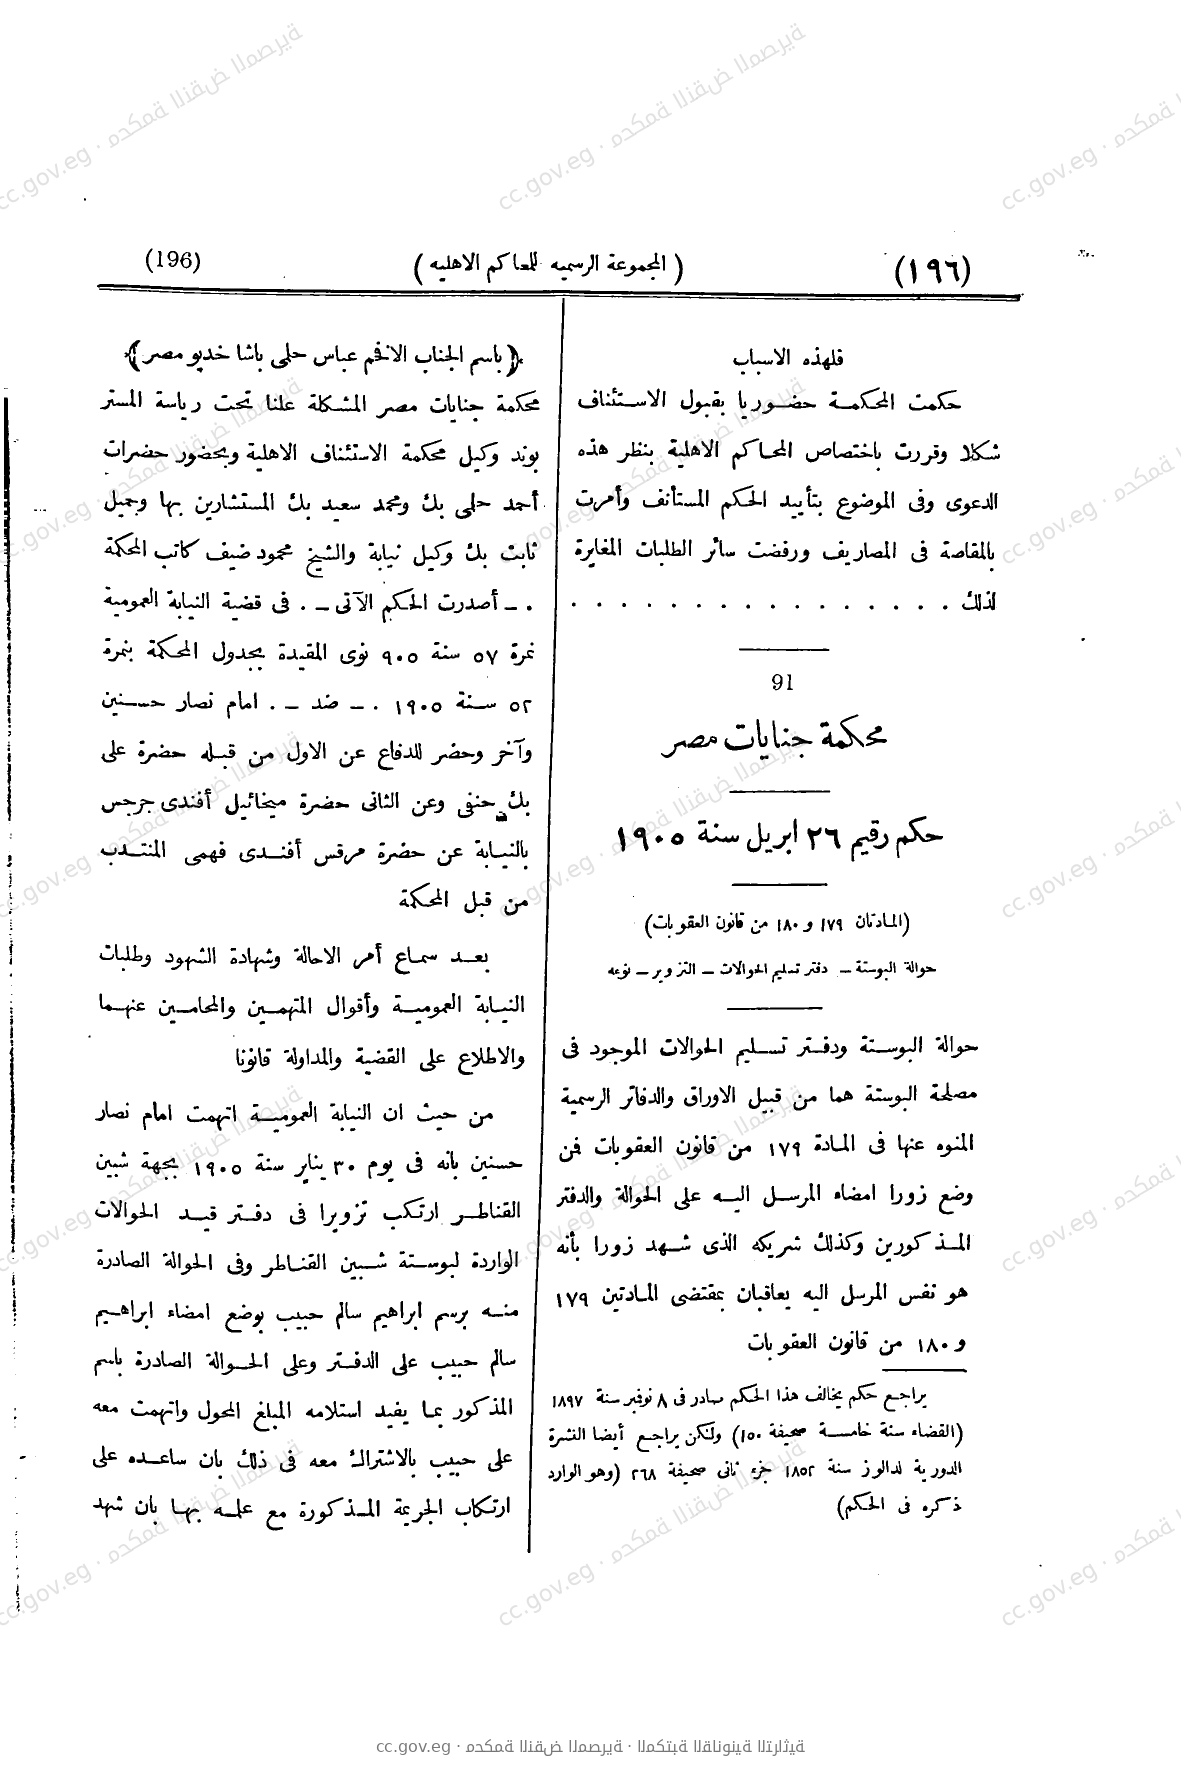 (١٩٦)
( المجموعة الرسميه للمحاكم الاهليه )
(196)
فلهذه الاسباب
حكمت المحكمة حضوريا بقبول الاستئناف
شكلا وقررت باختصاص المحاكم الاهلية بنظر هذه
الدعوى وفى الموضوع بتأييد الحكم المستأنف وأمرت
بالمقاصة فى المصاريف ورفضت سائر الطلبات المغايرة
لذلك . . . . . . . . . . . . . . . .
91
محكمة جنايات مصر
حكم رقيم ٢٦ ابريل سنة ١٩٠٥
(المادتان ١٧٩ و ١٨٠ من قانون العقوبات)
حوالة البوستة – دفتر تسليم الحوالات – التزوير – نوعه
حوالة البوستة ودفتر تسليم الحوالات الموجود فى
مصلحة البوستة هما من قبيل الاوراق والدفاتر الرسمية
المنوه عنها فى المادة ١٧٩ من قانون العقوبات فمن
وضع زورا امضاء المرسل اليه على الحوالة والدفتر
المذكورين وكذلك شريكه الذى شهد زورا بأنه
هو نفس المرسل اليه يعاقبان بمقتضى المادتين ١٧٩
و ١٨٠ من قانون العقوبات
يراجع حكم يخالف هذا الحكم صادر فى ٨ نوفمبر سنة ١٨٩٧
(القضاء سنة خامسة صحيفة ١٥٠) ولكن يراجع أيضا النشرة
الدورية لدالوز سنة ١٨٥٢ جزء ثانى صحيفة ٢٦٨ (وهو الوارد
ذكره فى الحكم)
﴿ باسم الجناب الافخم عباس حلمى باشا خديو مصر ﴾
محكمة جنايات مصر المشكلة علنا تحت رياسة المستر
بوند وكيل محكمة الاستئناف الاهلية وبحضور حضرات
أحمد حلمى بك ومحمد سعيد بك المستشارين بها وجميل
ثابت بك وكيل نيابة والشيخ محمود ضيف كاتب المحكمة
. – أصدرت الحكم الآتى – . فى قضية النيابة العمومية
نمرة ٥٧ سنة ٩٠٥ نوى المقيدة بجدول المحكمة بنمرة
٥٢ سنة ١٩٠٥ . – ضد – . امام نصار حسنين
وآخر وحضر للدفاع عن الاول من قبله حضرة على
بك حنفى وعن الثانى حضرة ميخائيل أفندى جرجس
بالنيابة عن حضرة مرقس أفندى فهمى المنتدب
من قبل المحكمة
بعد سماع أمر الاحالة وشهادة الشهود وطلبات
النيابة العمومية وأقوال المتهمين والمحامين عنهما
والاطلاع على القضية والمداولة قانونا
من حيث ان النيابة العمومية اتهمت امام نصار
حسنين بانه فى يوم ٣٠ يناير سنة ١٩٠٥ بجهة شبين
القناطر ارتكب تزويرا فى دفتر قيد الحوالات
الواردة لبوستة شبين القناطر وفى الحوالة الصادرة
منه برسم ابراهيم سالم حبيب بوضع امضاء ابراهيم
سالم حبيب على الدفتر وعلى الحوالة الصادرة باسم
المذكور بما يفيد استلامه المبلغ المحول واتهمت معه
على حبيب بالاشتراك معه فى ذلك بان ساعده على
ارتكاب الجريمة المذكورة مع علمه بها بان شهد
cc.gov.eg · محكمة النقض المصرية · المكتبة القانونية التراثية